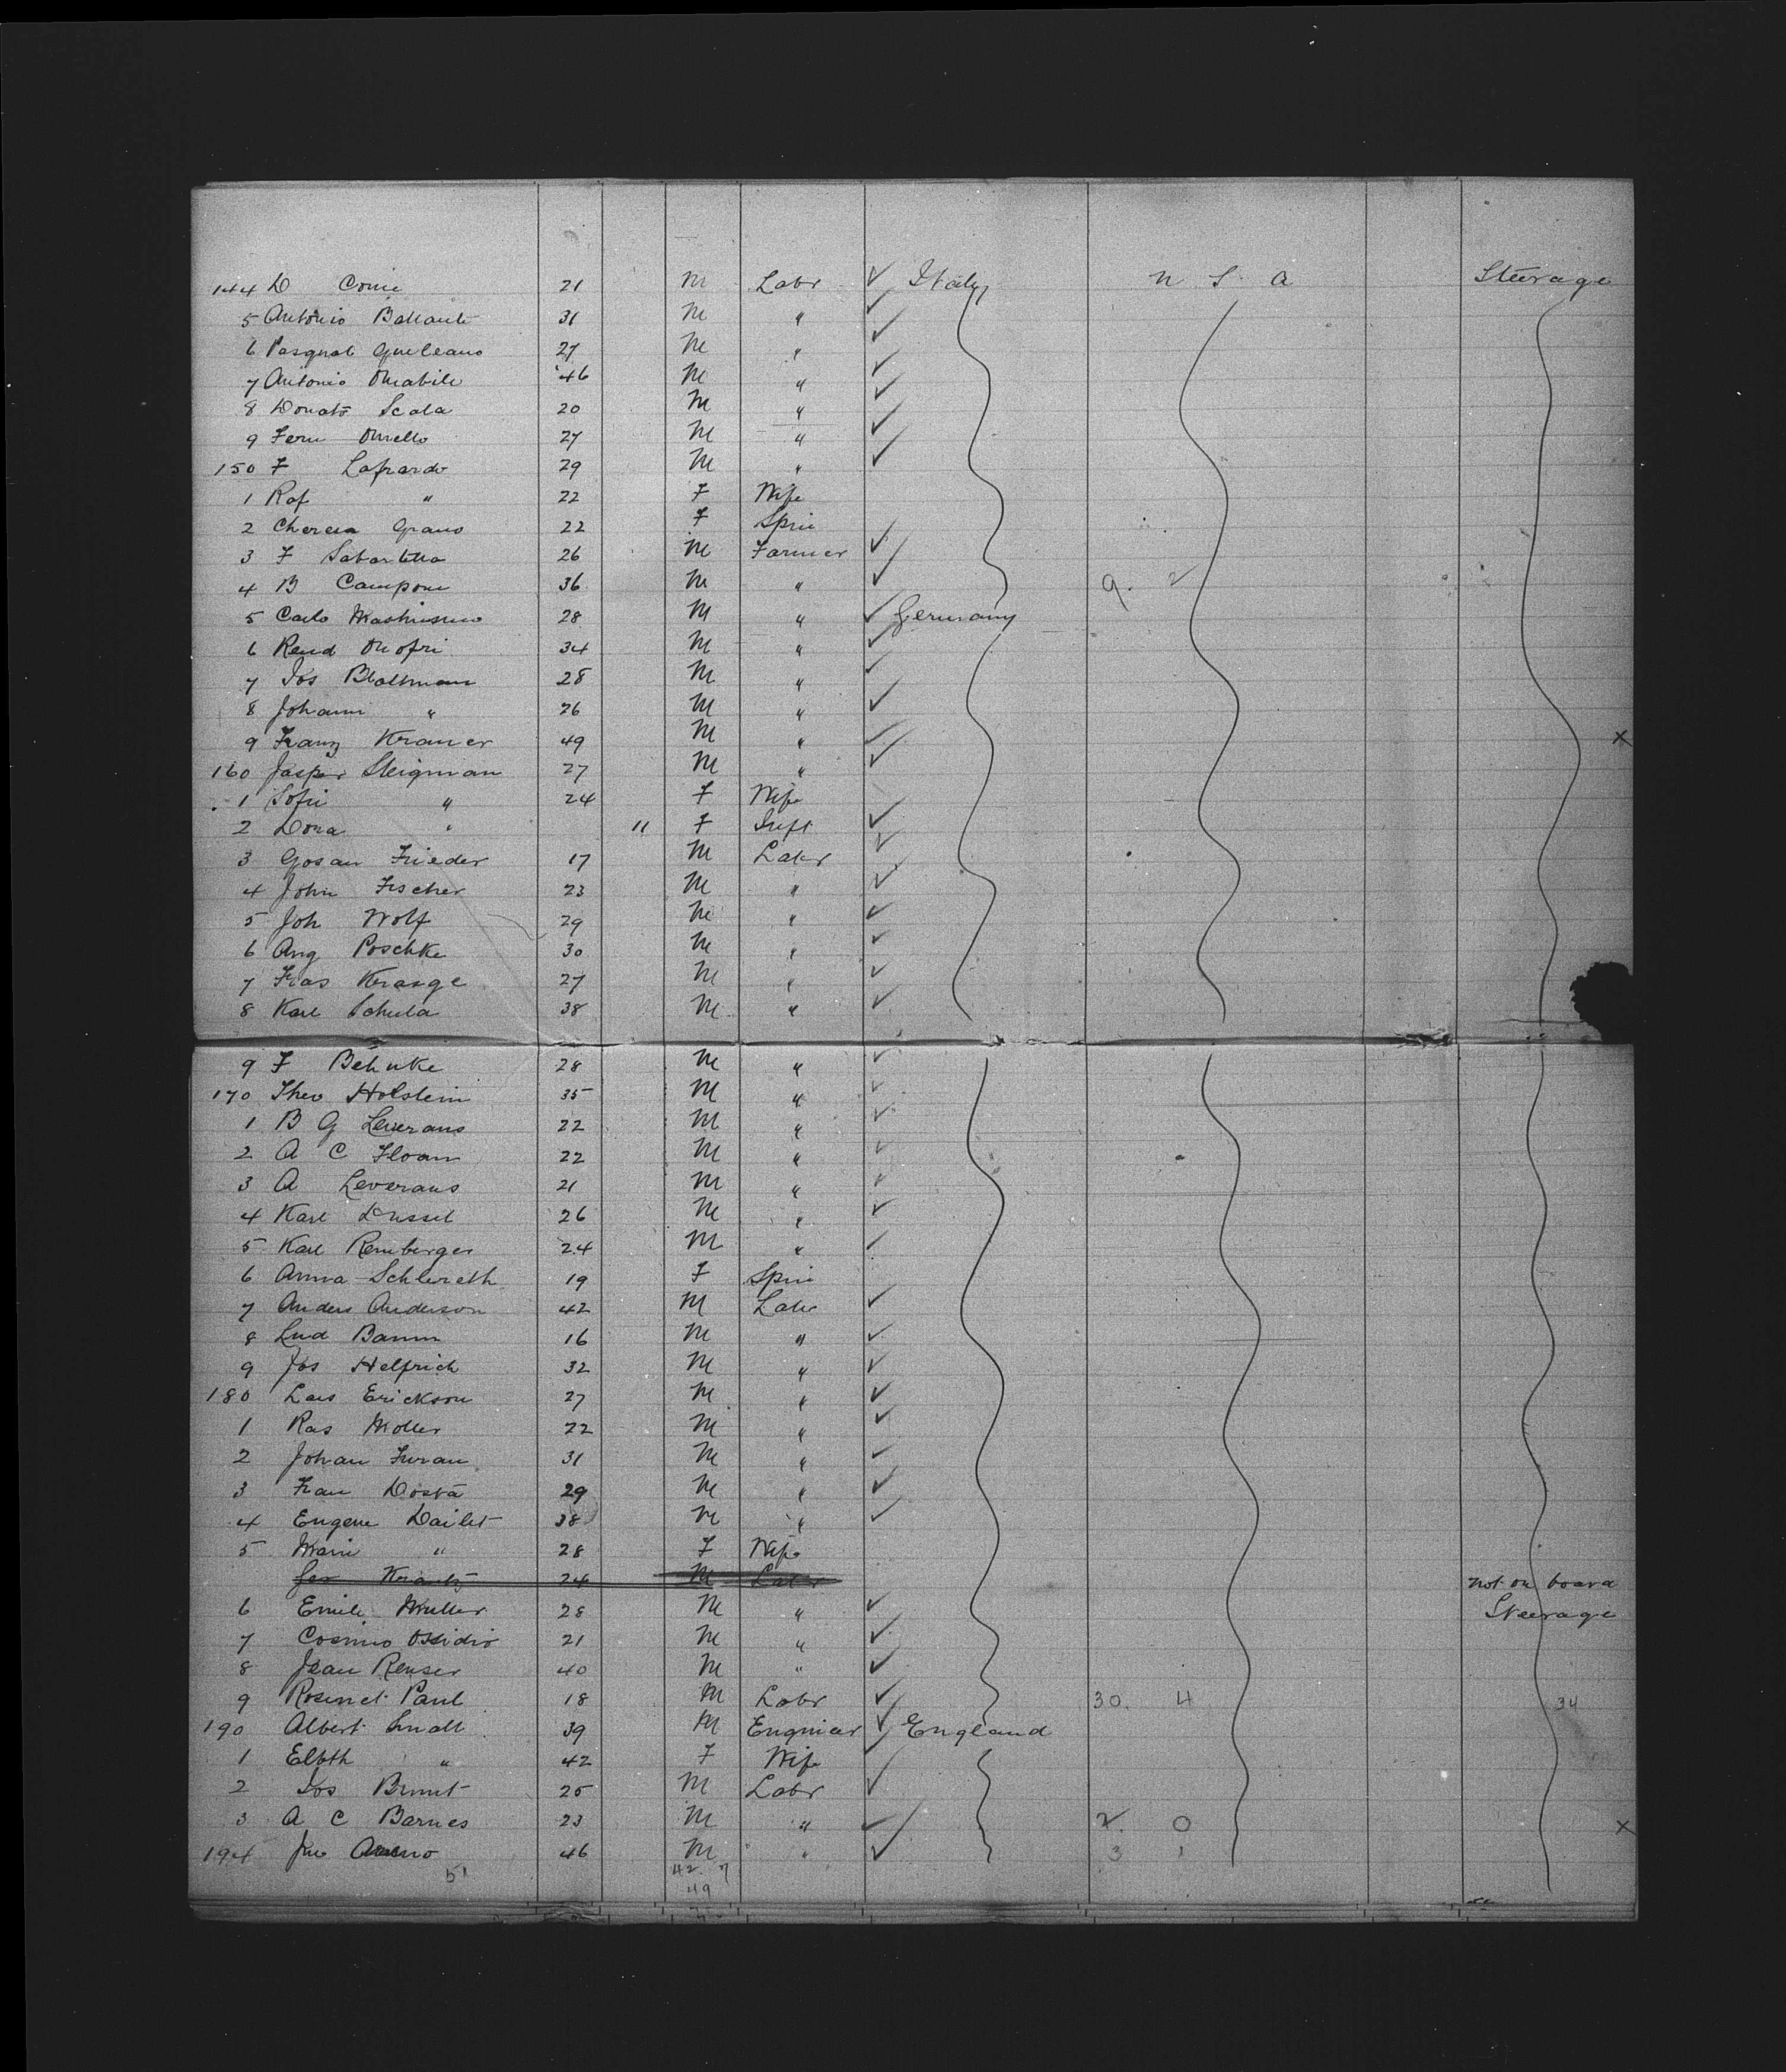 144 D Conie 21 M Labr ✓ Italy U S A Steerage
5 Antonio 31 M " ✓
6 Pasqual 27 M " ✓
7 Antonio 46 M " ✓
8 Donato Scala 20 M " ✓
9 27 M " ✓
150 F Lapardo 29 M " ✓
1 Raf " 22 F Wife
2 Cheresa Grano 22 F Spin
3 F 26 M Farmer ✓
4 B Campone 36 M " ✓ 9. 2
5 Carlo 28 M " ✓ Germany
6 Onofri 34 M " ✓
7 Jos Blattman 28 M " ✓
8 Johann " 26 M " ✓
9 Franz Kramer 49 M " ✓ x
160 Jasper Steigman 27 M " ✓
1 Sofie " 24 F Wife
2 Dora " 11 F Inft ✓
3 Frieder 17 M Labr ✓
4 John Fischer 23 M " ✓
5 Joh Wolf 29 M " ✓
6 Aug Poschke 30 M " ✓
7 Fras Krange 27 M " ✓
8 Karl Schula 38 M " ✓
9 F Behnke 28 M " ✓
170 Theo Holstein 35 M " ✓
1 B G Leverans 22 M " ✓
2 A C Floam 22 M " ✓
3 A Leverans 21 M " ✓
4 Karl Dussel 26 M " ✓
5 Karl Remberger 24 M " ✓
6 Anna Schlereth 19 F Spin
7 Anders Anderson 42 M Labr ✓
8 Lud Bamm 16 M " ✓
9 Jos Helfrich 32 M " ✓
180 Lars Erickson 27 M " ✓
1 Ras Moller 22 M " ✓
2 Johan 31 M " ✓
3 Fran Dosta 29 M " ✓
4 Eugene Dailet 38 M " ✓
5 Marie " 28 F Wife
Krantz 24 M Labr not on board
6 Emile Muller 28 M " ✓ Steerage
7 Cosimo Ossidio 21 M " ✓
8 Jean Renser 40 M " ✓
9 Rosinet Paul 18 M Labr ✓ 30. 4 34
190 Albert Small 39 M Engnieer ✓ England
1 Elbth " 42 F Wife ✓
2 Jos Brunt 25 M Labr ✓
3 A C Barnes 23 M " ✓ 2. 0 x
194 Jno 46 M " ✓ 3 1
51 42. 7
49